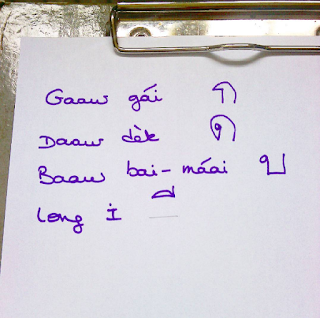 Gaaw gái ก
Daaw dèk ด
Baaw bai-máai บ
long i ◌ี